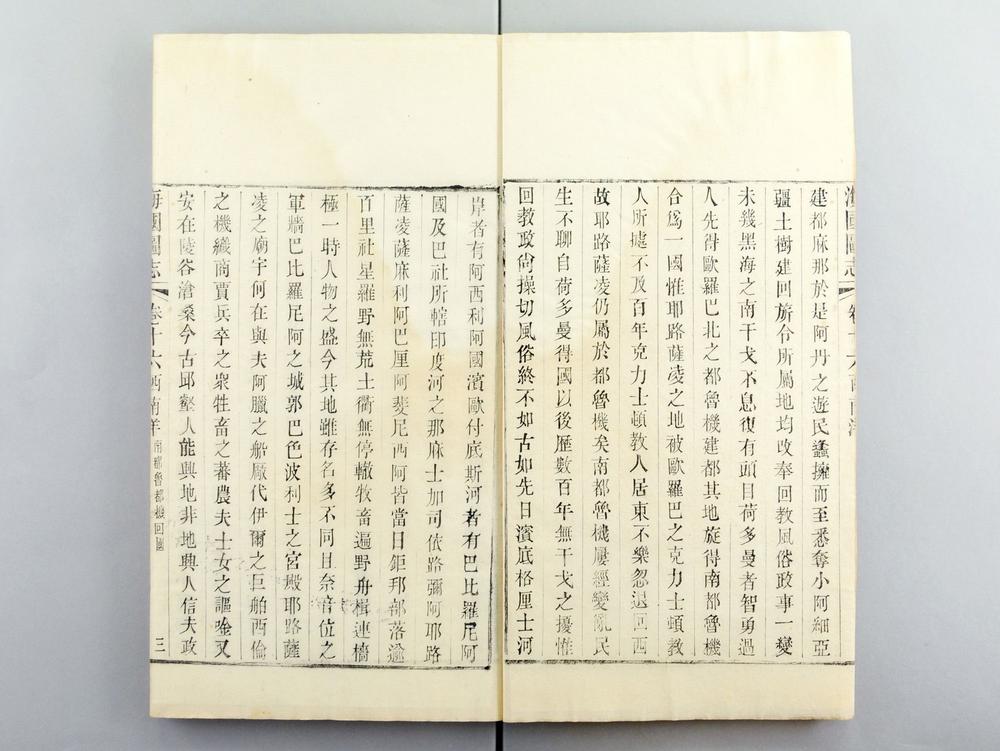 海國圖志 卷十六 西南洋
建都麻那於是阿丹之遊民蠭擁而至悉奪小阿細亞
疆土樹建回旂令所屬地均改奉回教風俗政事一變
未幾黑海之南干戈不息復有頭目荷多曼者智勇過
人先得歐羅巴北之都魯機建都其地旋得南都魯機
合爲一國惟耶路薩凌之地被歐羅巴之克力士頓教
人所據不及百年克力士頓教人居東不樂忽退回西
故耶路薩凌仍屬於都魯機矣南都魯機屢經變亂民
生不聊自荷多曼得國以後歷數百年無干戈之擾惟
回教政尙操切風俗終不如古如先日濱底格厘士河
岸者有阿西利阿國濱歐付底斯河者有巴比羅尼阿
國及巴社所轄印度河之那麻士加司依路彌阿耶路
薩凌薩麻利阿巴厘阿斐尼西阿皆當日鉅邦部落逾
百里社星羅野無荒土衢無停轍牧畜遍野舟楫連檣
極一時人物之盛今其地雖存名多不同且奈音位之
軍牆巴比羅尼阿之城郭巴色波利士之宮殿耶路薩
凌之廟宇何在與夫阿臘之船厰代伊爾之巨舶西倫
之機織商賈兵卒之衆牲畜之蕃農夫士女之謳唫又
安在陵谷滄桑今古邱壑人能興地非地興人信夫政
海國圖志 卷十六 西南洋 南都魯機回國 三